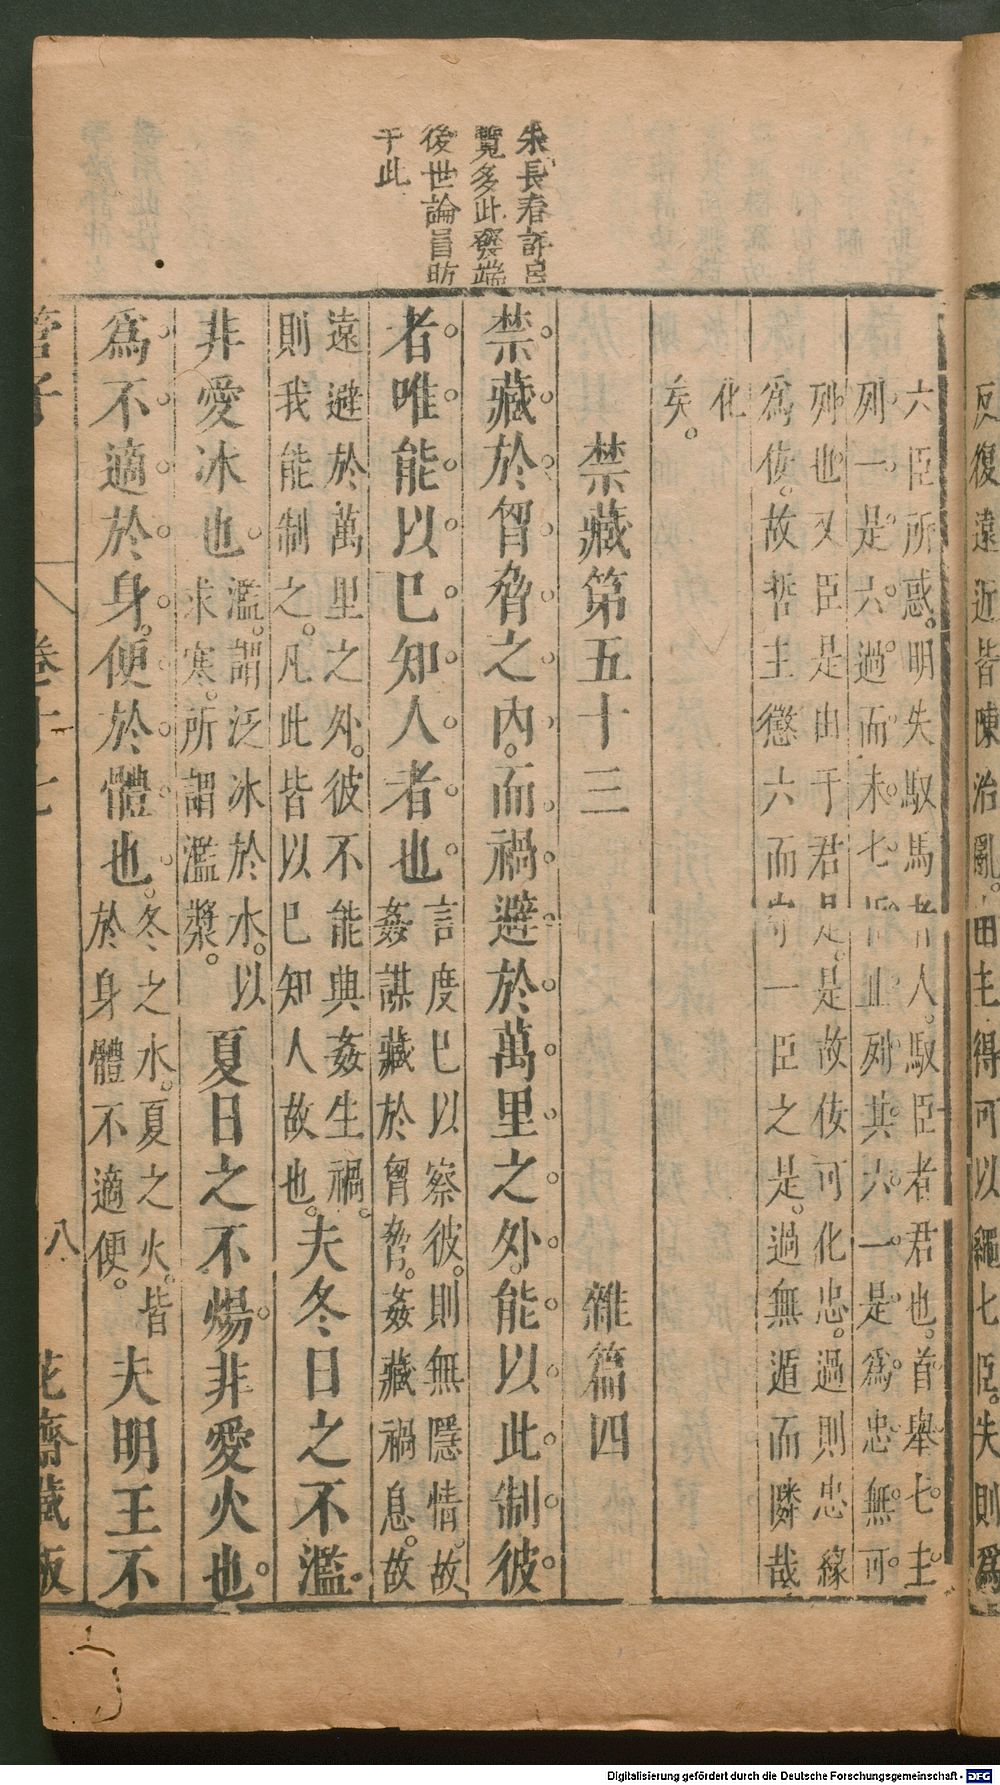 反復遠近皆陳治亂。由主得可以繩七臣。失則爲
六臣所惑。明失馭馬者人。馭臣者君也。首舉七主
列一是六過而未七臣止列共六一是爲忠無可
列也又臣是由于君是。是故佞可化忠。過則忠緣
爲佞。故哲主懲六而一臣之是。過無遁而隣哉
化
矣。
禁藏第五十三 雜篇四
朱長春評呂
覽多此發端
後世論員昉
于此
禁藏於胷脅之內。而禍避於萬里之外。能以此制彼
者唯能以已知人者也
言度已以察彼。則無隱情。故
姦謀藏於胷脅。姦藏禍息。故
遠避於萬里之外。彼不能典姦生禍。
則我能制之。凡此皆以已知人故也。
夫冬日之不濫。
非愛冰也。
濫。謂泛冰於水。以
求寒。所謂濫漿。
夏日之不煬。非愛火也。
爲不適於身。便於體也。
冬之水。夏之火。皆
於身體不適便。
夫明王不
管子
卷十七
八
花齋藏版
Digitalisierung gefördert durch die Deutsche Forschungsgemeinschaft - DFG